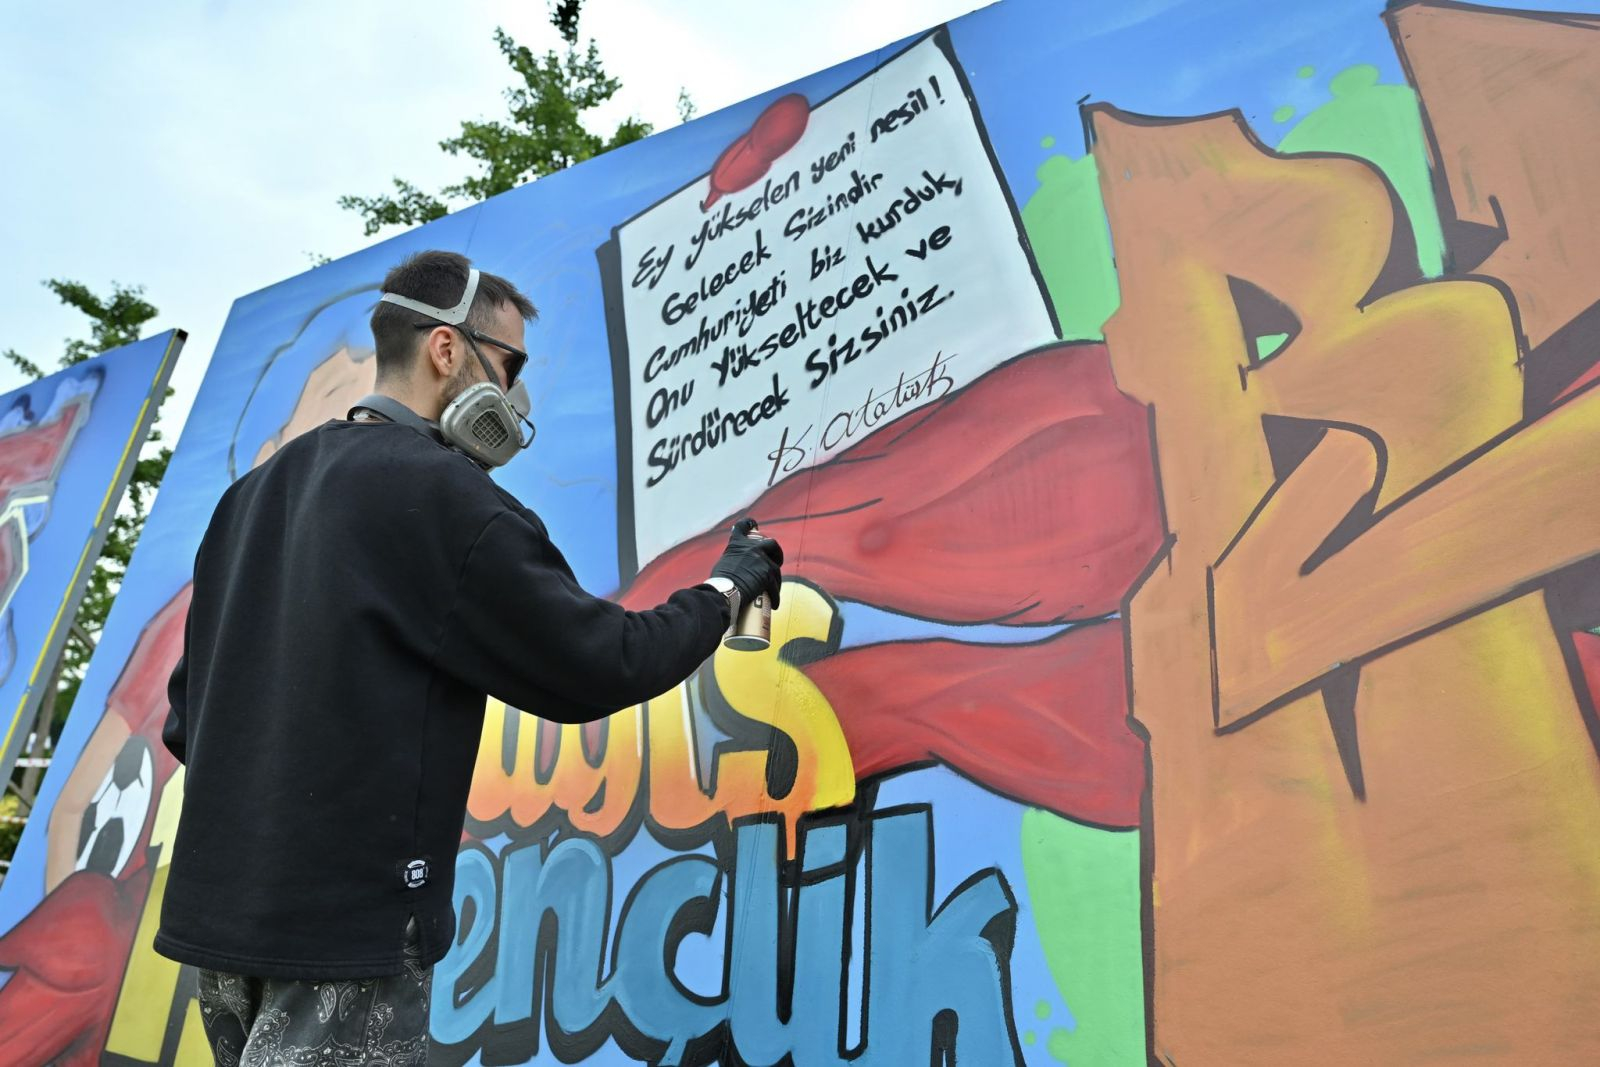 Ey yükselen yeni nesil!
Gelecek Sizindir
Cumhuriyeti biz kurduk,
Onu yükseltecek ve
Sürdürecek Sizsiniz.
K. Atatürk
ençlik
808